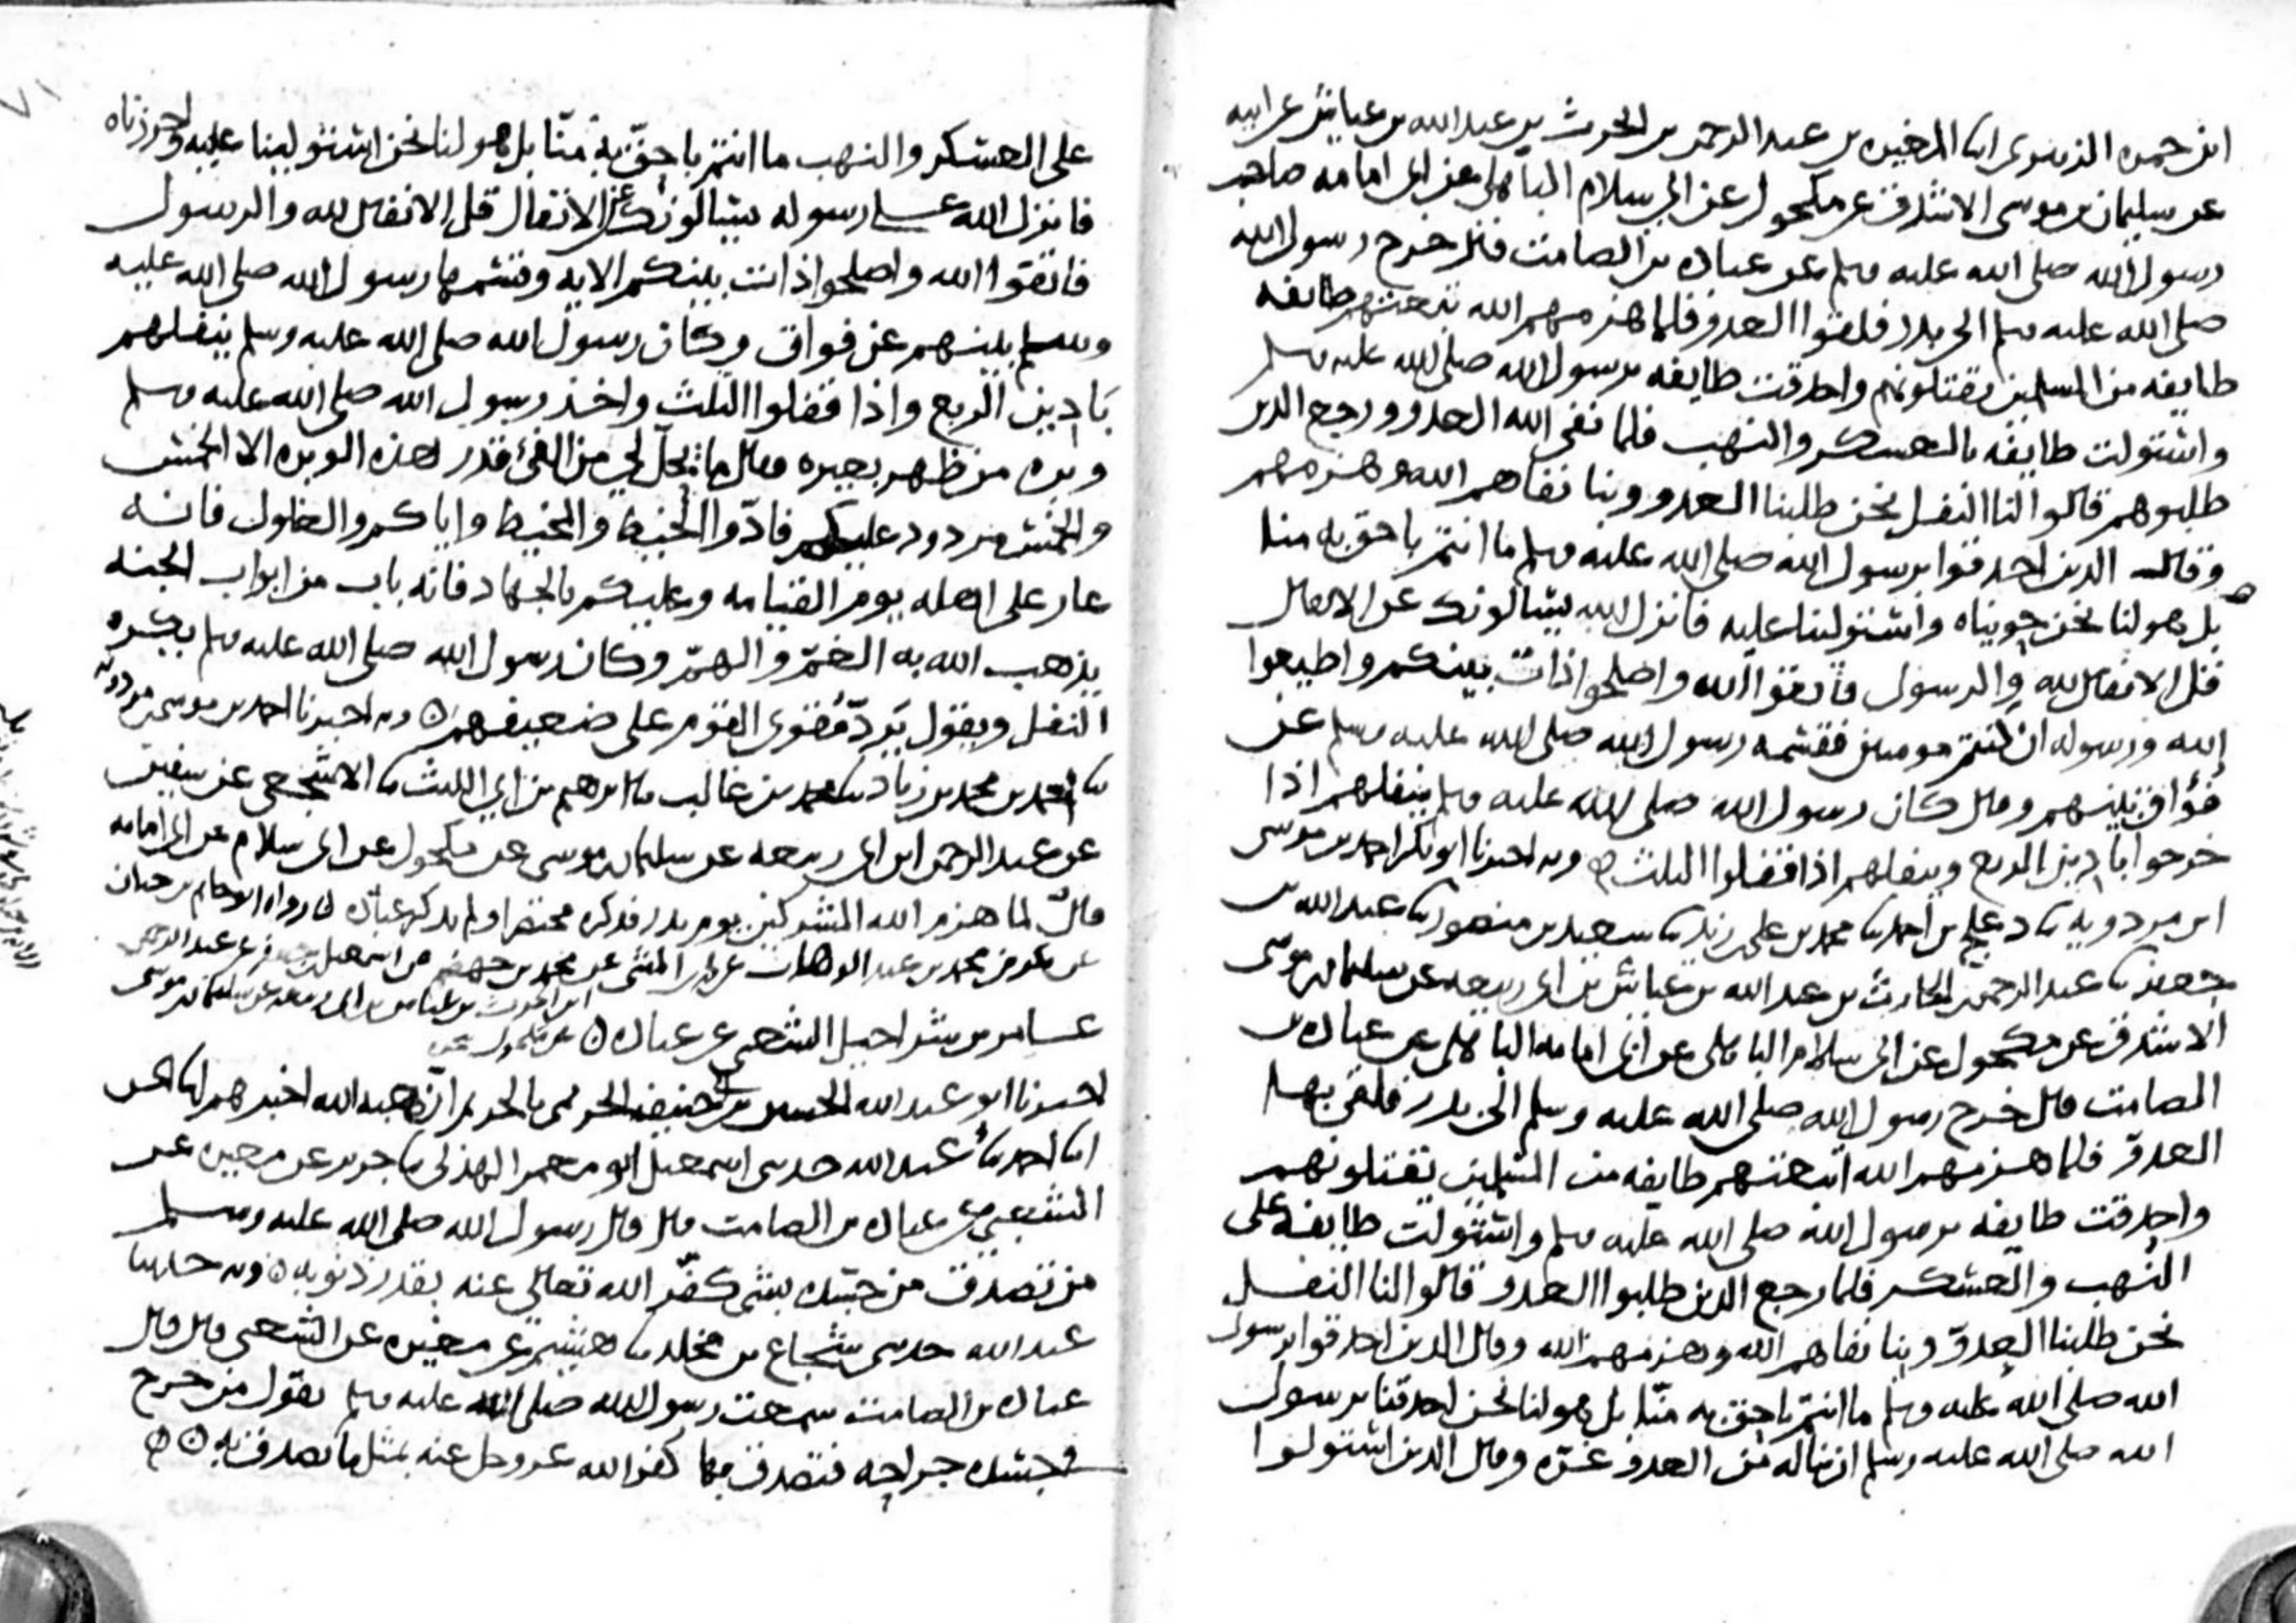 ابن حمزه الزبيري انا المغيره بن عبد الرحمن بن الحرث بن عبد الله بن عياش عن ابيه
عن سليمان بن موسى الاشدق عن مكحول عن ابي سلام الباهلي عن ابي امامه صاحب
رسول الله صلى الله عليه وسلم عن عباده بن الصامت قال خرج رسول الله
صلى الله عليه وسلم الى بدر فلقوا العدو فلما هزمهم الله تبعتهم طايفه
طايفه من المسلمين يقتلونهم واحدقت طايفه برسول الله صلى الله عليه وسلم
واستولت طايفه بالعسكر والنهب فلما نفى الله العدو ورجع الذين
طلبوهم قالوا لنا النفل نحن طلبنا العدو وبنا نفاهم الله وهزمهم
وقال الذين احدقوا برسول الله صلى الله عليه وسلم ما انتم باحق به منا
بل هو لنا نحن حويناه واستولينا عليه فانزل الله يسالونك عن الانفال
قل الانفال لله والرسول فاتقوا الله واصلحوا ذات بينكم واطيعوا
الله ورسوله ان كنتم مومنين فقسمه رسول الله صلى الله عليه وسلم عن
فواق بينهم وقال كان رسول الله صلى الله عليه وسلم ينفلهم اذا
خرجوا بادين الربع وينفلهم اذا قفلوا الثلث وبه اخبرنا ابو بكر احمد بن موسى
ابن مردويه نا دعلج بن احمد نا محمد بن علي بن زيد نا سعيد بن منصور نا عبد الله بن
جعفر نا عبد الرحمن بن الحارث بن عبد الله بن عياش بن ابي ربيعه عن سليمان بن موسى
الاشدق عن مكحول عن ابي سلام الباهلي عن ابي امامه الباهلي عن عباده بن
الصامت قال خرج رسول الله صلى الله عليه وسلم الى بدر فلقي بها
العدو فلما هزمهم الله اتبعتهم طايفه من المسلمين يقتلونهم
واحدقت طايفه برسول الله صلى الله عليه وسلم واستولت طايفه على
النهب والعسكر فلما رجع الذين طلبوا العدو قالوا لنا النفل
نحن طلبنا العدو وبنا نفاهم الله وهزمهم الله وقال الذين احدقوا برسول
الله صلى الله عليه وسلم ما انتم باحق به منا بل هو لنا نحن احدقنا برسول
الله صلى الله عليه وسلم ان يناله من العدو غره وقال الذين استولوا
٧١
على العسكر والنهب ما انتم باحق به منا بل هو لنا نحن استولينا عليه واحرزناه
فانزل الله على رسوله يسالونك عن الانفال قل الانفال لله والرسول
فاتقوا الله واصلحوا ذات بينكم الايه وقسمها رسول الله صلى الله عليه
وسلم بينهم عن فواق وكان رسول الله صلى الله عليه وسلم ينفلهم
بادين الربع واذا قفلوا الثلث واخذ رسول الله صلى الله عليه وسلم
وبره من ظهر بعيره وقال ما يحل لي من الفئ قدر هذه الوبره الا الخمس
والخمس مردود عليكم فادوا الخيط والمخيط واياكم والغلول فانه
عار على اهله يوم القيامه وعليكم بالجهاد فانه باب من ابواب الجنه
يذهب الله به الغم والهم وكان رسول الله صلى الله عليه وسلم يكره
النفل ويقول يرد قوي القوم على ضعيفهم وبه اخبرنا احمد بن موسى بن مردويه
نا احمد بن محمد بن زياد نا محمد بن غالب نا ابرهيم بن ابي الليث نا الاشجعي عن سفين
عن عبد الرحمن ابن ابي ربيعه عن سليمان بن موسى عن مكحول عن ابي سلام عن ابي امامه
قال لما هزم الله المشركين يوم بدر فذكره مختصرا ولم يذكر عباده رواه ابو حاتم بن حبان
عن محمد بن عبد الوهاب عن محمد بن جهضم عن اسمعيل بن جعفر عن عبد الرحمن
ابن الحرث بن عياش بن ابي ربيعه عن سليمان بن موسى
عن مكحول عن
عامر بن شراحيل الشعبي عن عباده
اخبرنا ابو عبد الله الحسين بن حنيفه الحربي بالحربيه ان هبه الله اخبرهم انا الحسن
انا احمد نا عبد الله حدثني اسمعيل ابو معمر الهذلي نا جرير عن مغيره عن
الشعبي عن عباده بن الصامت قال قال رسول الله صلى الله عليه وسلم
من تصدق من جسده بشئ كفر الله تعالى عنه بقدر ذنوبه وبه حدثنا
عبد الله حدثني شجاع بن مخلد نا هشيم عن مغيره عن الشعبي قال قال
عباده بن الصامت سمعت رسول الله صلى الله عليه وسلم يقول من جرح
في جسده جراحه فتصدق بها كفر الله عز وجل عنه بمثل ما تصدق به